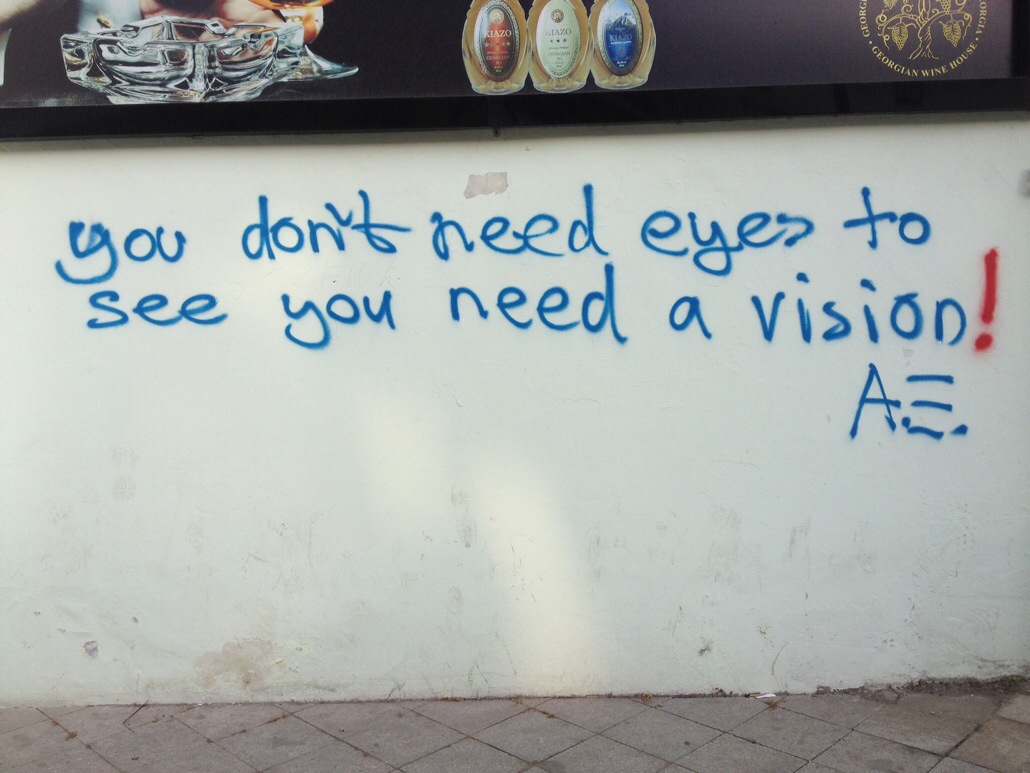 KIAZO
GEORGIAN
KIAZO
KIAZO
GEORGIAN WINE HOUSE
you don't need eyes to
see you need a vision!
A.E.